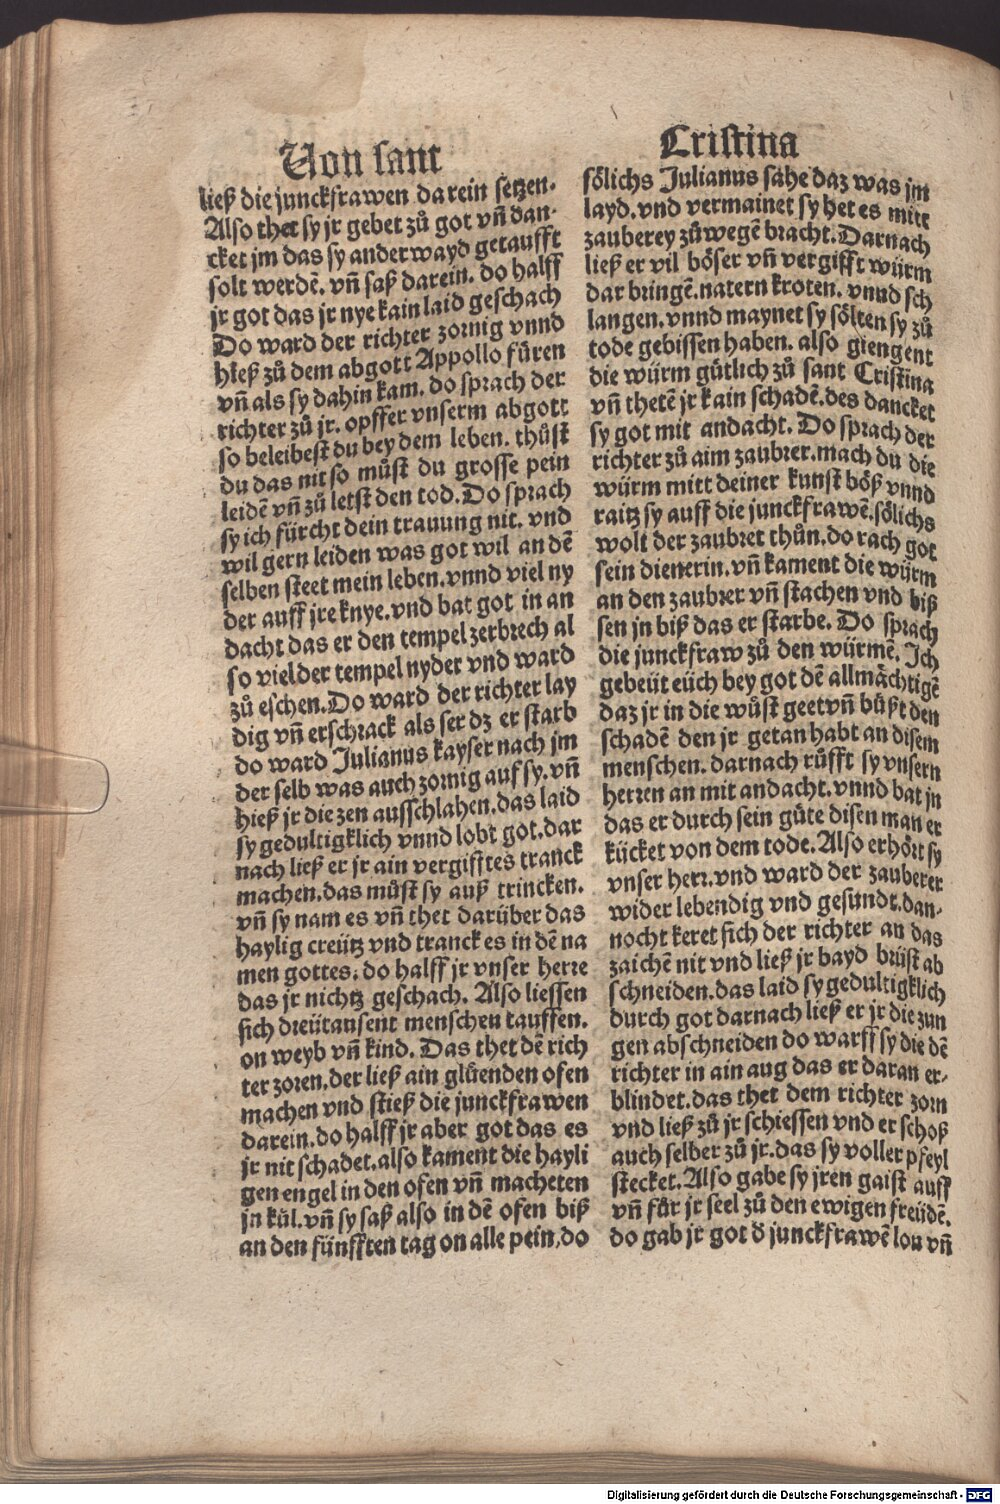 Von sant
ließ die junckfrawen darein setzen.
Also thet sy jr gebet zů got vñ dan-
cket jm das sy anderwayd getaufft
solt werdē. vñ saß darein. do halff
jr got das jr nye kain laid geschach
Do ward der richter zornig vnnd
hieß zů dem abgott Appollo füren
vñ als sy dahin kam. do sprach der
richter zů jr. opffer vnserm abgott
so beleibest du bey dem leben. thůst
du das nit so můst du grosse pein
leidē vñ zů letst den tod. Do sprach
sy ich fürcht dein trauung nit. vnd
wil gern leiden was got wil an dē
selben steet mein leben. vnnd viel ny
der auff jre knye. vnd bat got in an
dacht das er den tempel zerbrech al
so viel der tempel nyder vnd ward
zů eschen. Do ward der richter lay
dig vñ erschrack als ser dz er starb
do ward Julianus kayser nach jm
der selb was auch zornig auf sy. vñ
hieß jr die zen ausschlahen. das laid
sy gedultigklich vnnd lobt got. dar
nach ließ er jr ain vergifftes tranck
machen. das můst sy auß trincken.
vñ sy nam es vñ thet darüber das
haylig creütz vnd tranck es in dē na
men gottes. do halff jr vnser herre
das jr nichtz geschach. Also liessen
sich dreütausent menschen tauffen.
on weyb vñ kind. Das thet dē rich
ter zoren. der ließ ain glüenden ofen
machen vnd stieß die junckfrawen
darein. do halff jr aber got das es
jr nit schadet. also kament die hayli
gen engel in den ofen vñ macheten
jn kül. vñ sy saß also in dē ofen biß
an den fünfften tag on alle pein. do
Cristina
sölichs Julianus sahe daz was jm
layd. vnd vermainet sy het es mitt
zauberey zůwegē bracht. Darnach
ließ er vil böser vñ vergifft würm
dar bringē. natern kroten. vnnd sch
langen. vnnd maynet sy sölten sy zů
tode gebissen haben. also giengent
die würm gůtlich zů sant Cristina
vñ thetē jr kain schadē. des dancket
sy got mit andacht. Do sprach der
richter zů aim zaubrer. mach du die
würm mitt deiner kunst böß vnnd
raitz sy auff die junckfrawē. sölichs
wolt der zaubrer thůn. do rach got
sein dienerin. vñ kament die würm
an den zaubrer vñ stachen vnd biß
sen jn biß das er starbe. Do sprach
die junckfraw zů den würmē. Ich
gebeüt eüch bey got dē allmåchtigē
daz jr in die wůst geet vñ bůßt den
schadē den jr getan habt an disem
menschen. darnach růfft sy vnsern
herren an mit andacht. vnnd bat jn
das er durch sein güte disen man er
kücket von dem tode. Also erhört sy
vnser herr. vnd ward der zauberer
wider lebendig vnd gesundt. dan-
nocht keret sich der richter an das
zaichē nit vnd ließ jr bayd brüst ab
schneiden. das laid sy gedultigklich
durch got darnach ließ er jr die zun
gen abschneiden do warff sy die dē
richter in ain aug das er daran er-
blindet. das thet dem richter zorn
vnd ließ zů jr schiessen vnd er schoß
auch selber zů jr. das sy voller pfeyl
stecket. Also gabe sy jren gaist auff
vñ får jr seel zů den ewigen freüdē.
do gab jr got đ junckfrawē lon vñ
Digitalisierung gefördert durch die Deutsche Forschungsgemeinschaft - DFG